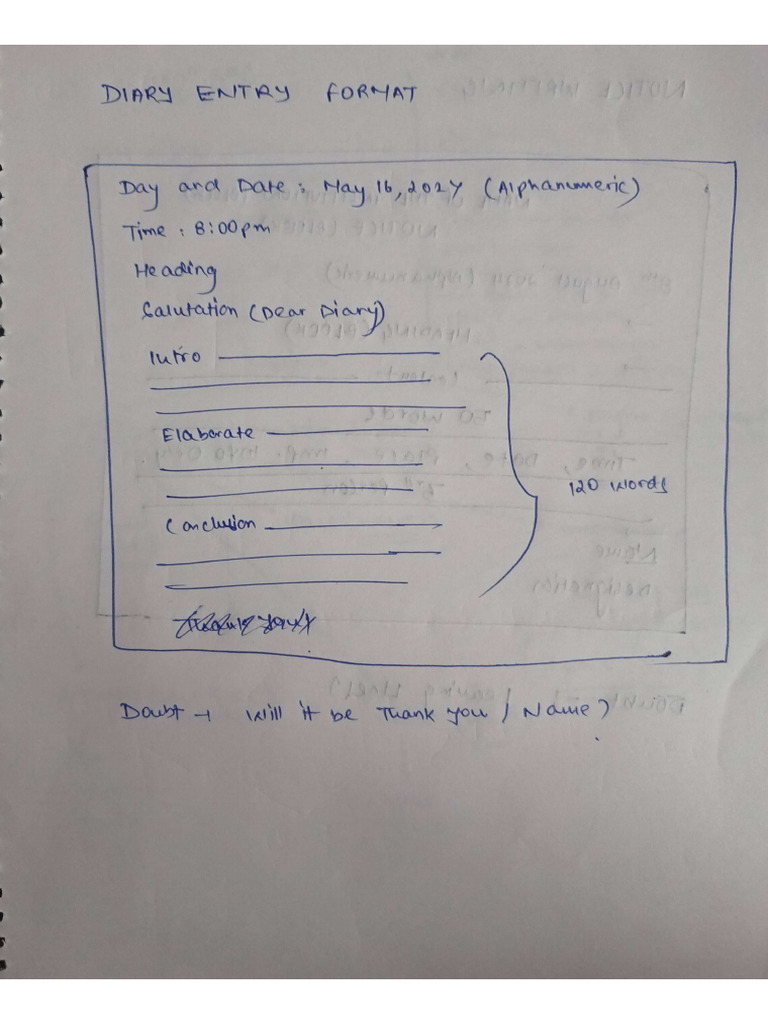 DIARY ENTRY FORMAT
Day and Date : May 16, 2024 (Alphanumeric)
Time : 8:00pm
Heading
Salutation (Dear Diary)
Intro
Elaborate
120 words
Conclusion
Doubt → Will it be Thank you / Name?